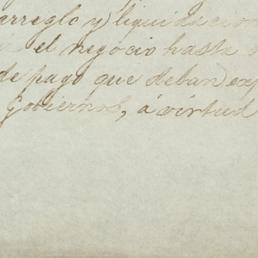 arreglo y liquidacion
el negocio hasta
de pago que deban exp
Gobierno, á virtud